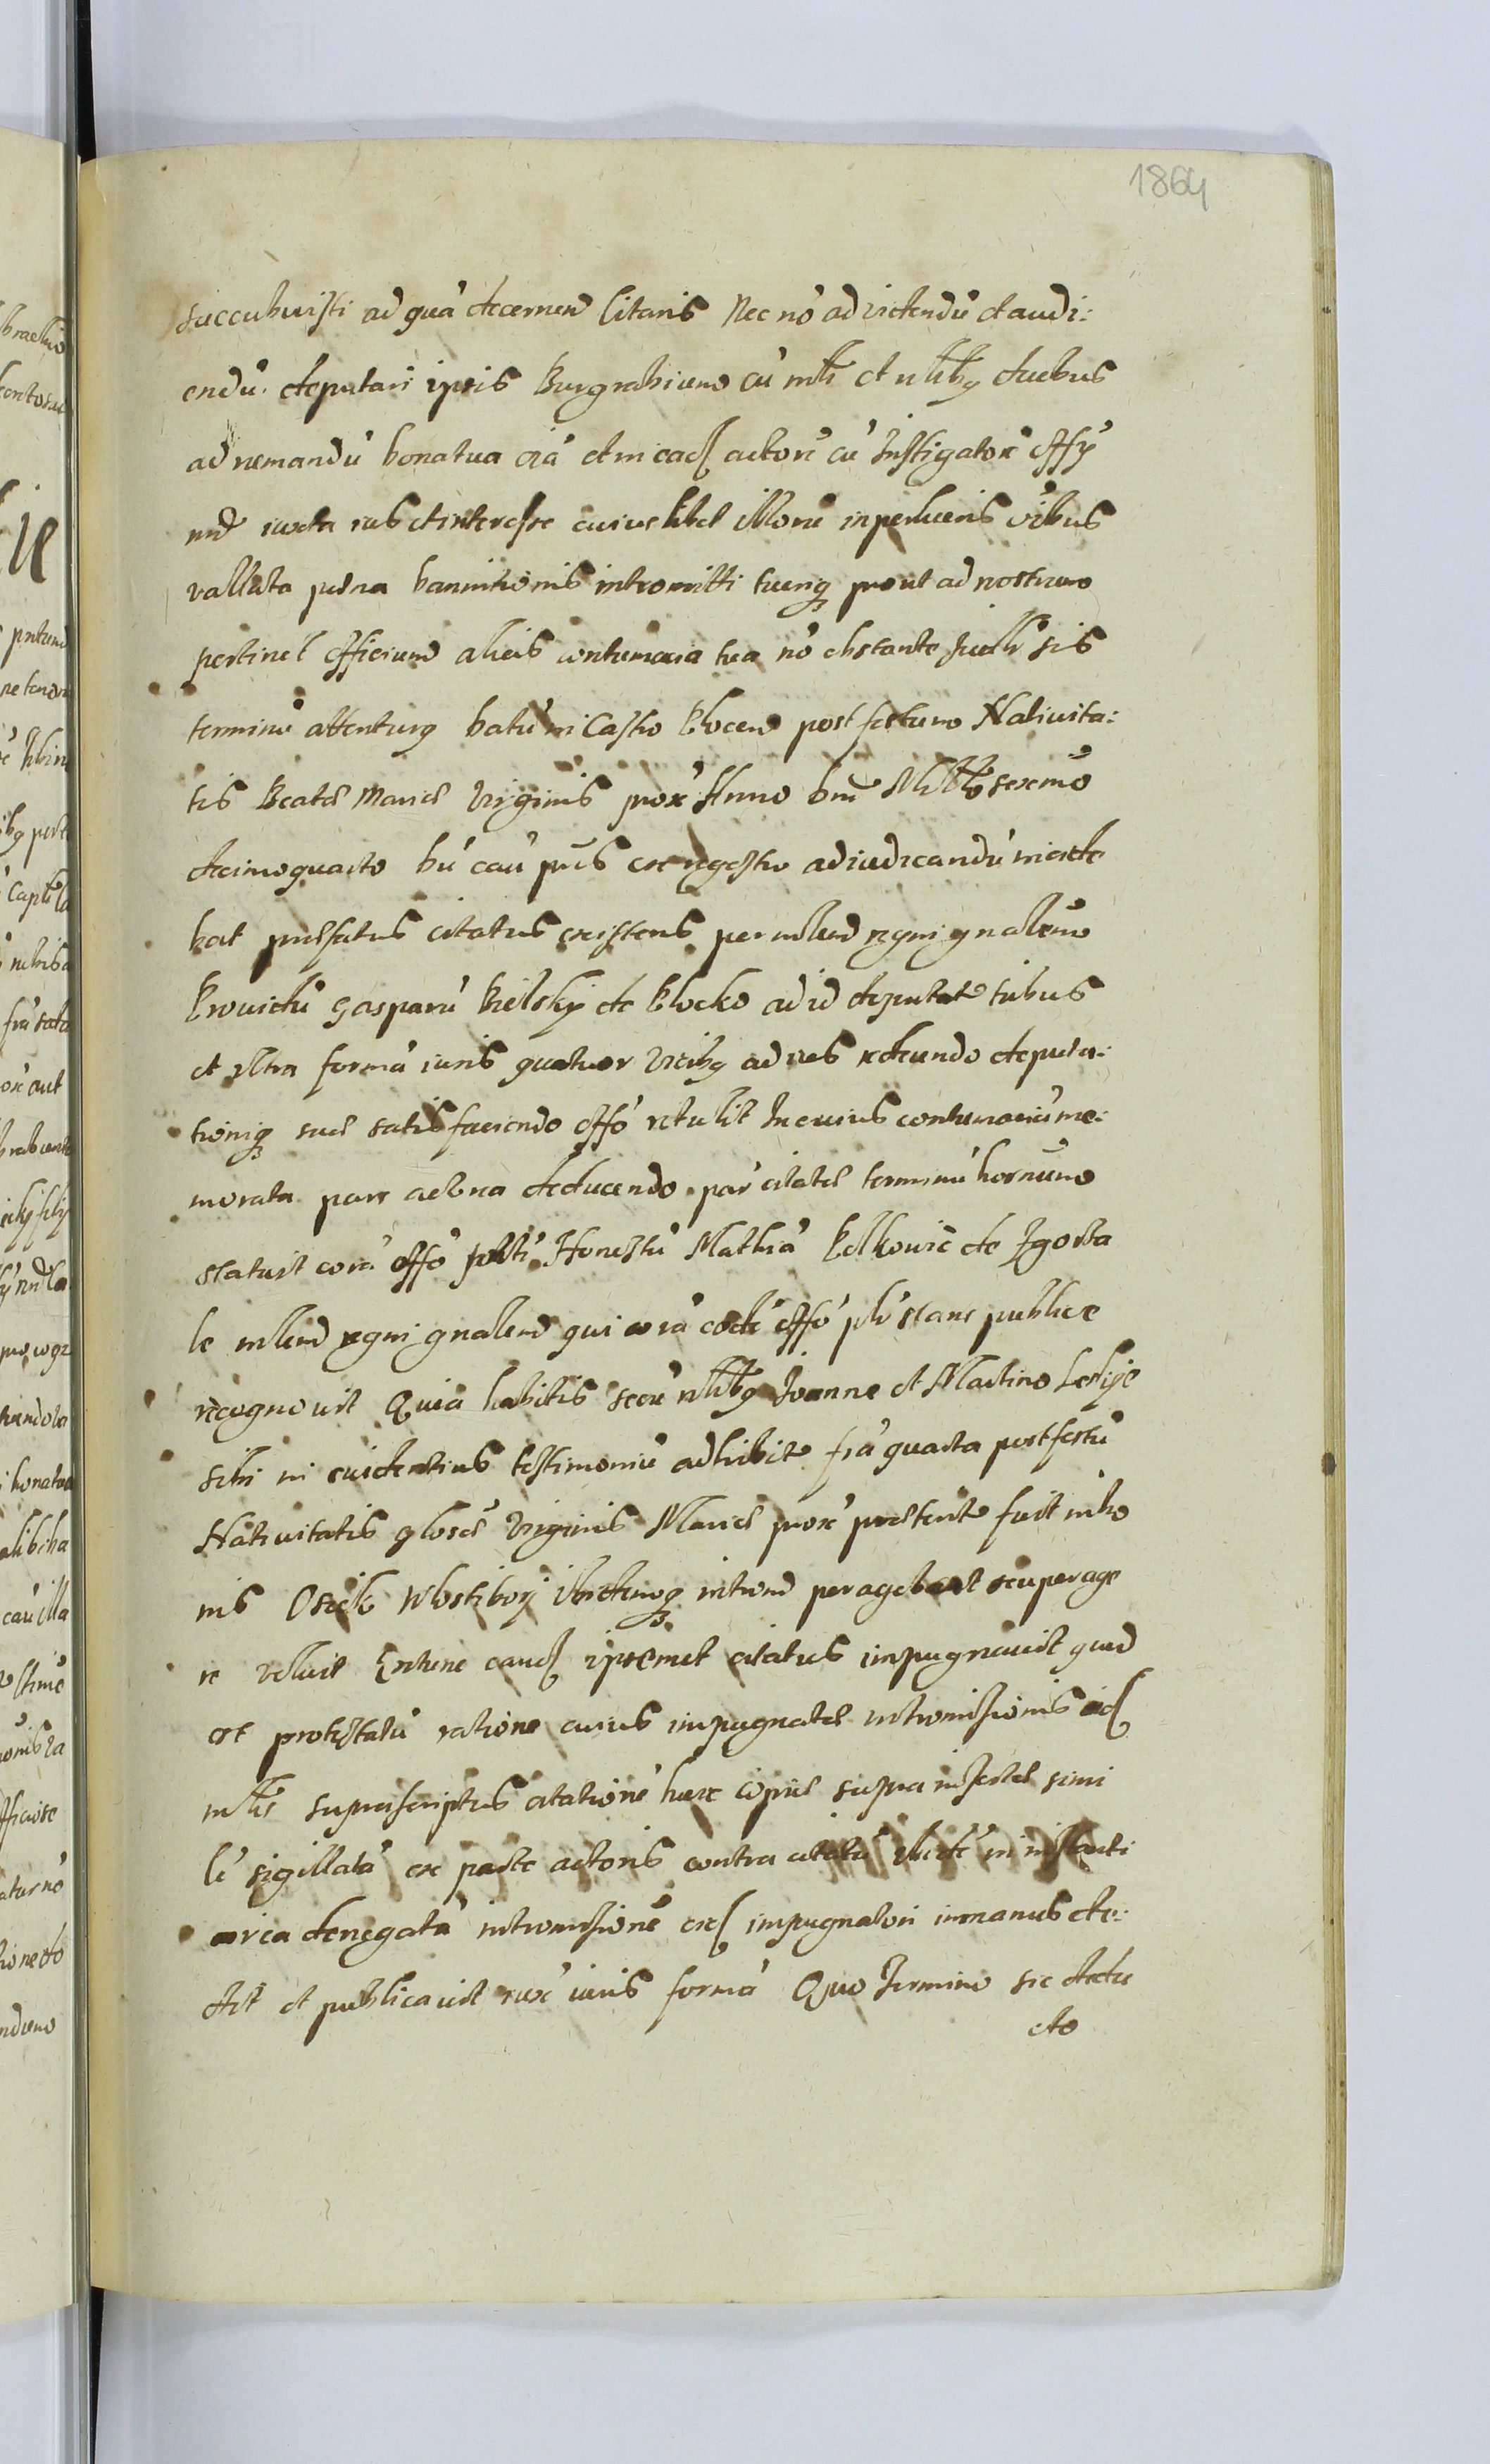 1864
succubuisti ad quá decernend Citaris Nec nó ad videndú et audi:
endú deputari ipsis Burgrabium cú mli et nlibq duobus
ad nemandú bona tua oiá et in eads actoré cú Instigatore offy
nri iuxta ius et interesse cuiuslibet illorú in perlucris oibus
vallata poena bannitionis intromitti tuerique prout ad nostrum
pertinet officium alias contumacia tua nó obstante Iudlr sis
terminú attenturq batú in Castro Plocen post festum Nativita:
tis Beatae Mariae Virginis prox Anno Dni Millo sexcmo
decimoquarto hú caú pns ex regestro adiudicandú incide
bat praefatus citatus existens per mlem regni gnalem
Providú Gasparú Bielsky de Plocko ad id deputat tribus
et ultra formá iuris quatuor vicibq ad res redeundo deputa:
tioniq suae satisfaciendo offó retulit In cuius contumaciá me:
morata pars actorea deducendo par citatae terminú hornum
statuit corá offó pnti Honestú Mathiá Petkowic de Zgorza
le mlem regni gnalem qui corá eodé offó pló stans publice
recognovit Quia habitis secú nlibq Joanne et Martino Leskye
sibi in evidentius testimoniú adhibit frá quarta post festú
Nativitatis glosae Virginis Mariae prox praeterite fuit in bo
nis Osiek Wlostibory ibidemq introm peragebat seu perage
re voluit Extunc eands ipsemet citatus impugnavit quod
est protestatú ratione cuius impugnatae intromissionis ids
mlis suprascriptus citationé huic copiae supra insertae simi
lé sigillatá ex parte actoris contra citatú ibidé in instanti
circa denegatá intromissioné eids impugnatori in manus de:
dit et publicavit iux iuris formá Quo Termino sic dedu
cto